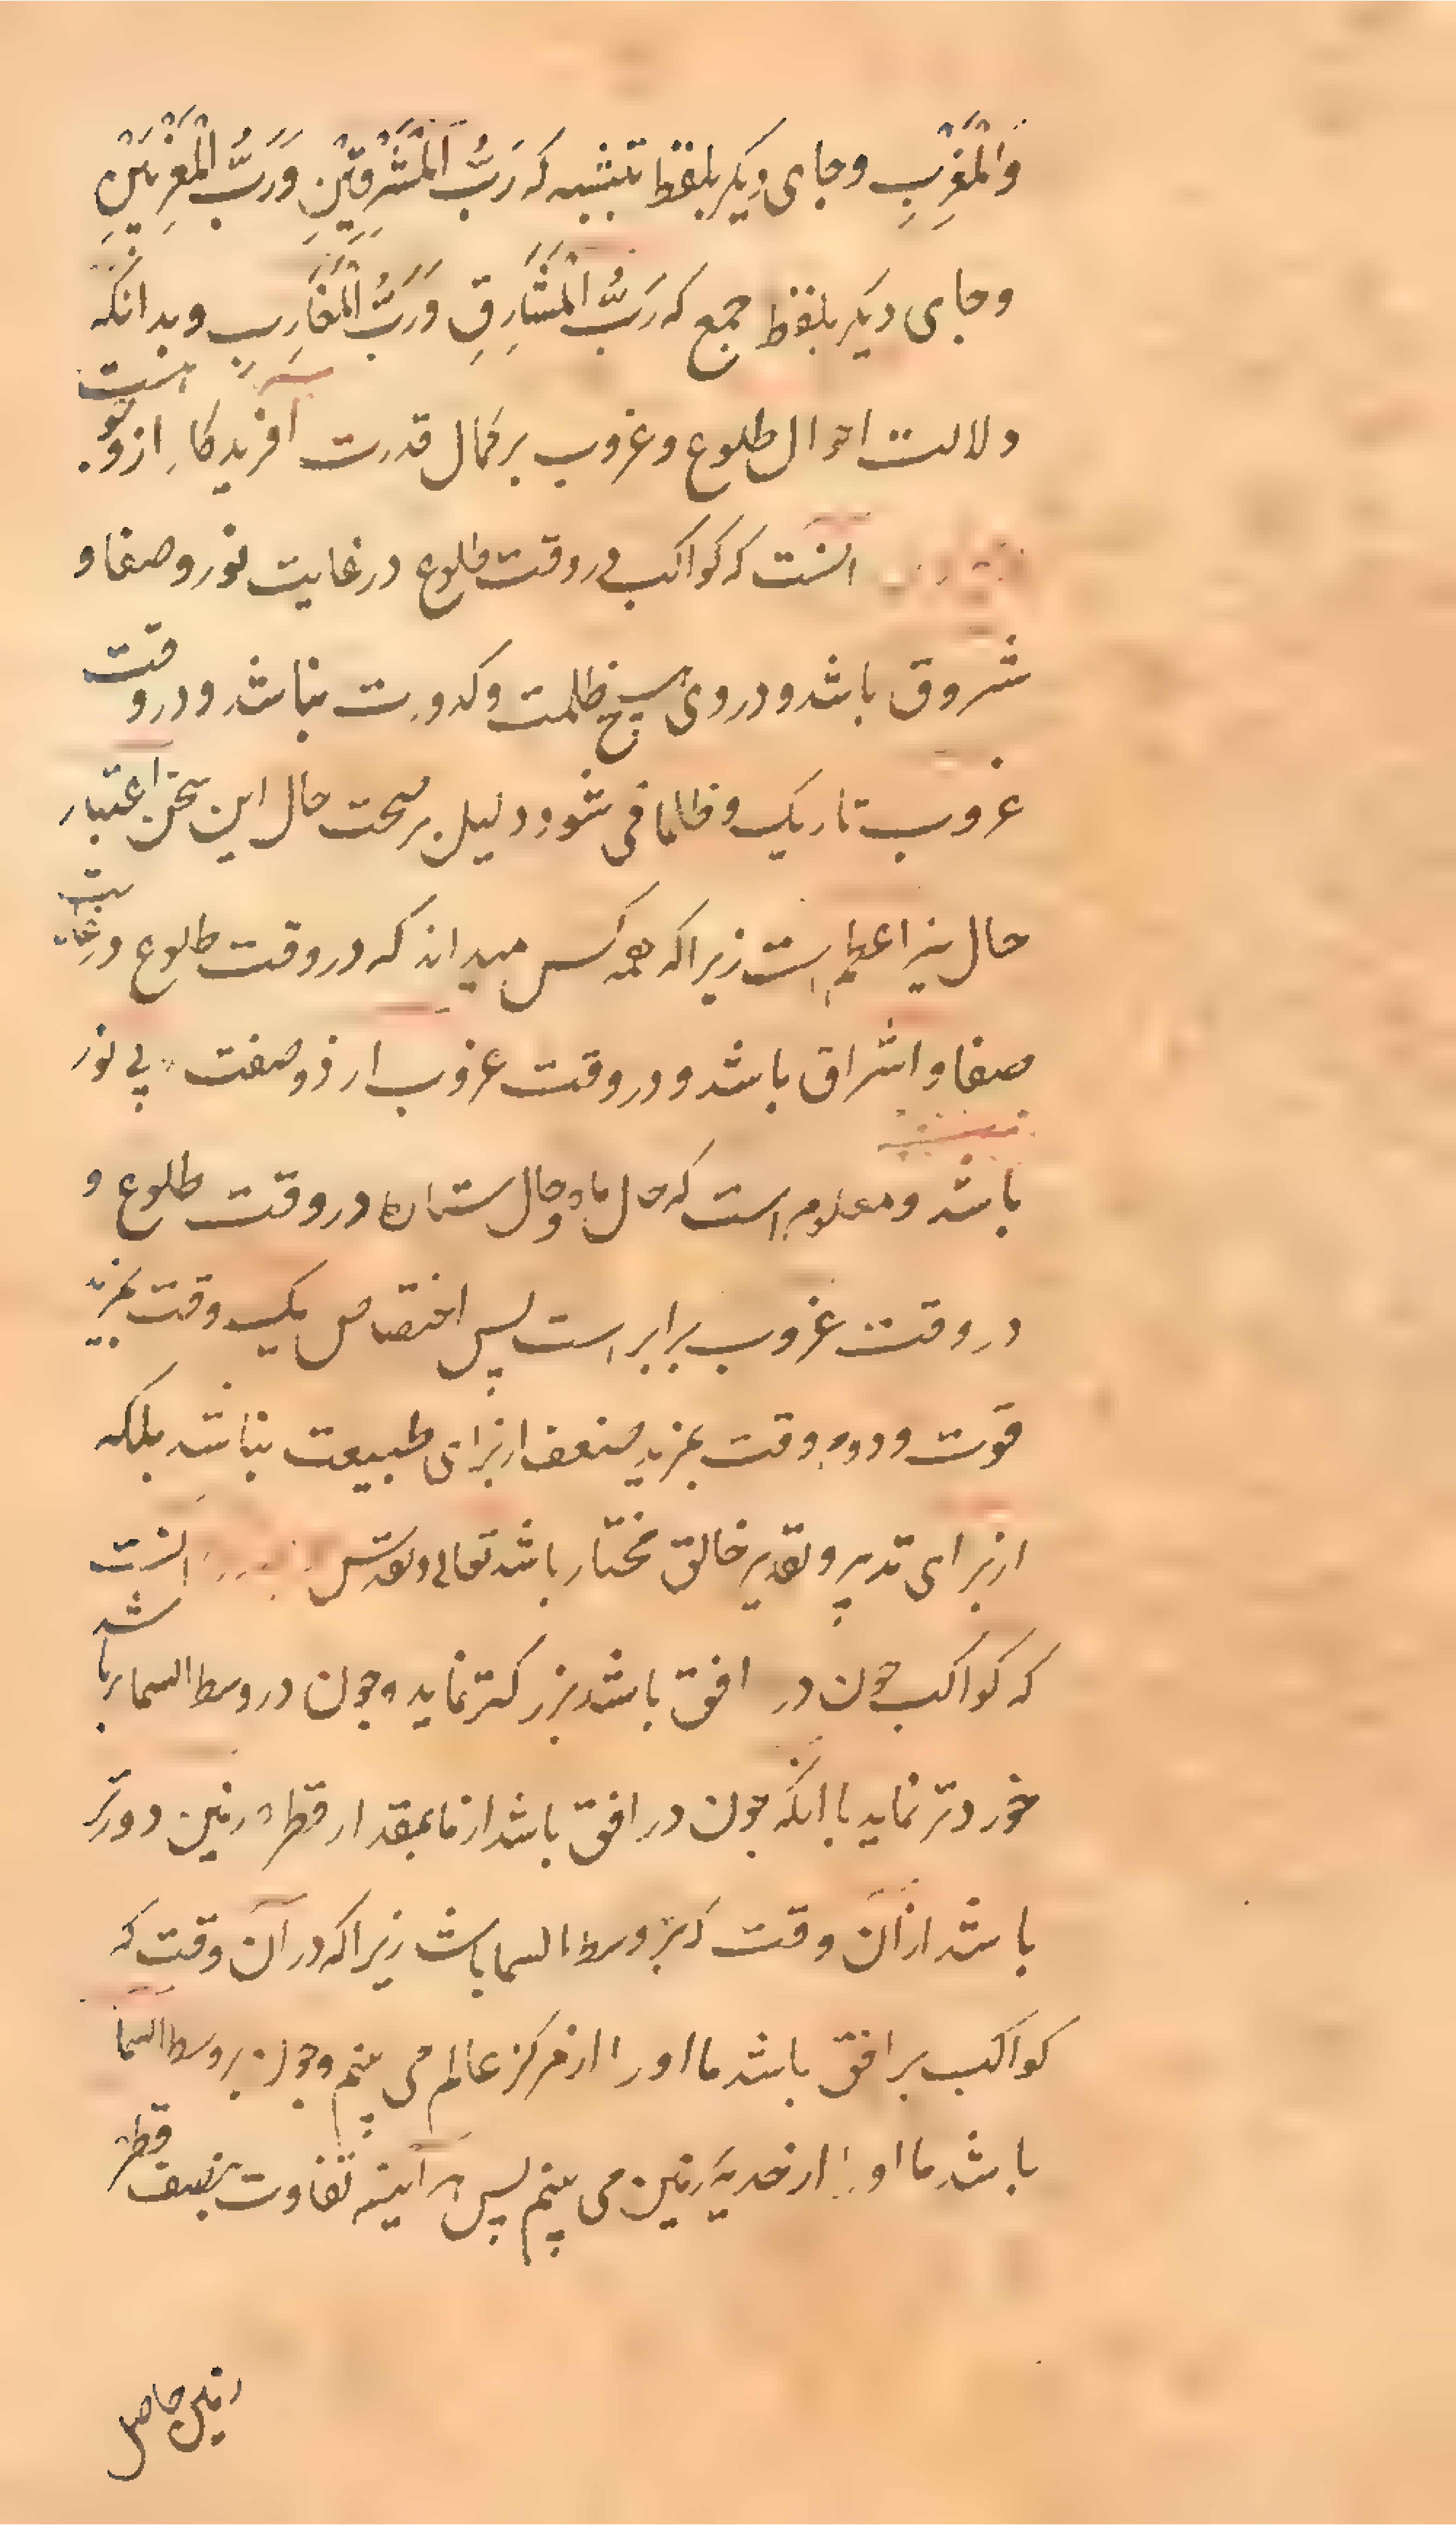 وَالْمَغْرِبِ وجای دیکر بلفظ تثنیه که رَبُّ الْمَشْرِقَیْنِ وَرَبُّ الْمَغْرِبَیْنِ
وجای دیکر بلفظ جمع که رَبُّ الْمَشَارِقِ وَرَبُّ الْمَغَارِبِ وبدانکه
دلالت احوال طلوع وغروب بر کمال قدرت آفریدکار از دو
آنست که کواکب در وقت طلوع در غایت نور وصفا و
شروق باشد ودر وی هیچ ظلمت وکدورت نباشد ودر وقت
غروب تاریک وظلمانی شود ودلیل بر صحت حال این سخن اعتبار
حال نیر اعظم است زیرا که همه کس میداند که در وقت طلوع در غایت
صفا واشراق باشد ودر وقت غروب از ذو صفت بی نور
باشد ومعلوم است که حال ماه وحال ستارها در وقت طلوع و
در وقت غروب برابر است پس اختصاص یک وقت بمزید
قوت ودوم وقت بمزید ضعف از برای طبیعت نباشد بلکه
از برای تدبیر وتقدیر خالق مختار باشد تعالی وتقدس آنست
که کواکب چون در افق باشد بزرکتر نماید وچون در وسط السما باشد
خوردتر نماید با آنکه چون در افق باشد از ما بمقدار قطر زمین دورتر
باشد از آن وقت که بر وسط السما باشد زیرا که در آن وقت که
کواکب بر افق باشد ما او را از مرکز عالم می بینم وچون بر وسط السما
باشد ما او را از حدبهٔ زمین می بینم پس هر آینه تفاوت بنصف قطر
زمین حاصل